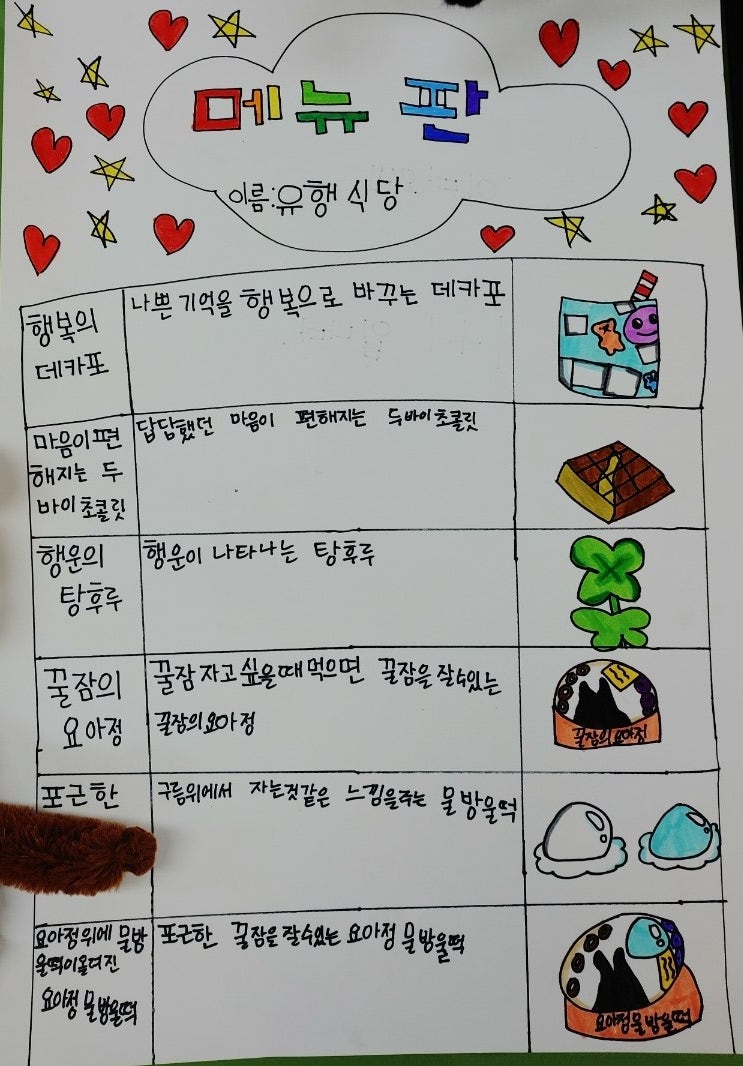 메뉴판
이름:유행식당
행복의
데카포
나쁜기억을 행복으로 바꾸는 데카포
마음이편
해지는 두
바이초콜릿
답답했던 마음이 편해지는 두바이초콜릿
행운의
탕후루
행운이 나타나는 탕후루
꿀잠의
요아정
꿀잠자고싶을때먹으면 꿀잠을잘수있는
꿀잠의요아정
꿀잠의요아정
포근한
구름위에서 자는것같은 느낌을주는 물방울떡
요아정위에 물방
울떡이올려진
요아정물방울떡
포근한 꿀잠을잘수있는 요아정물방울떡
요아정물방울떡